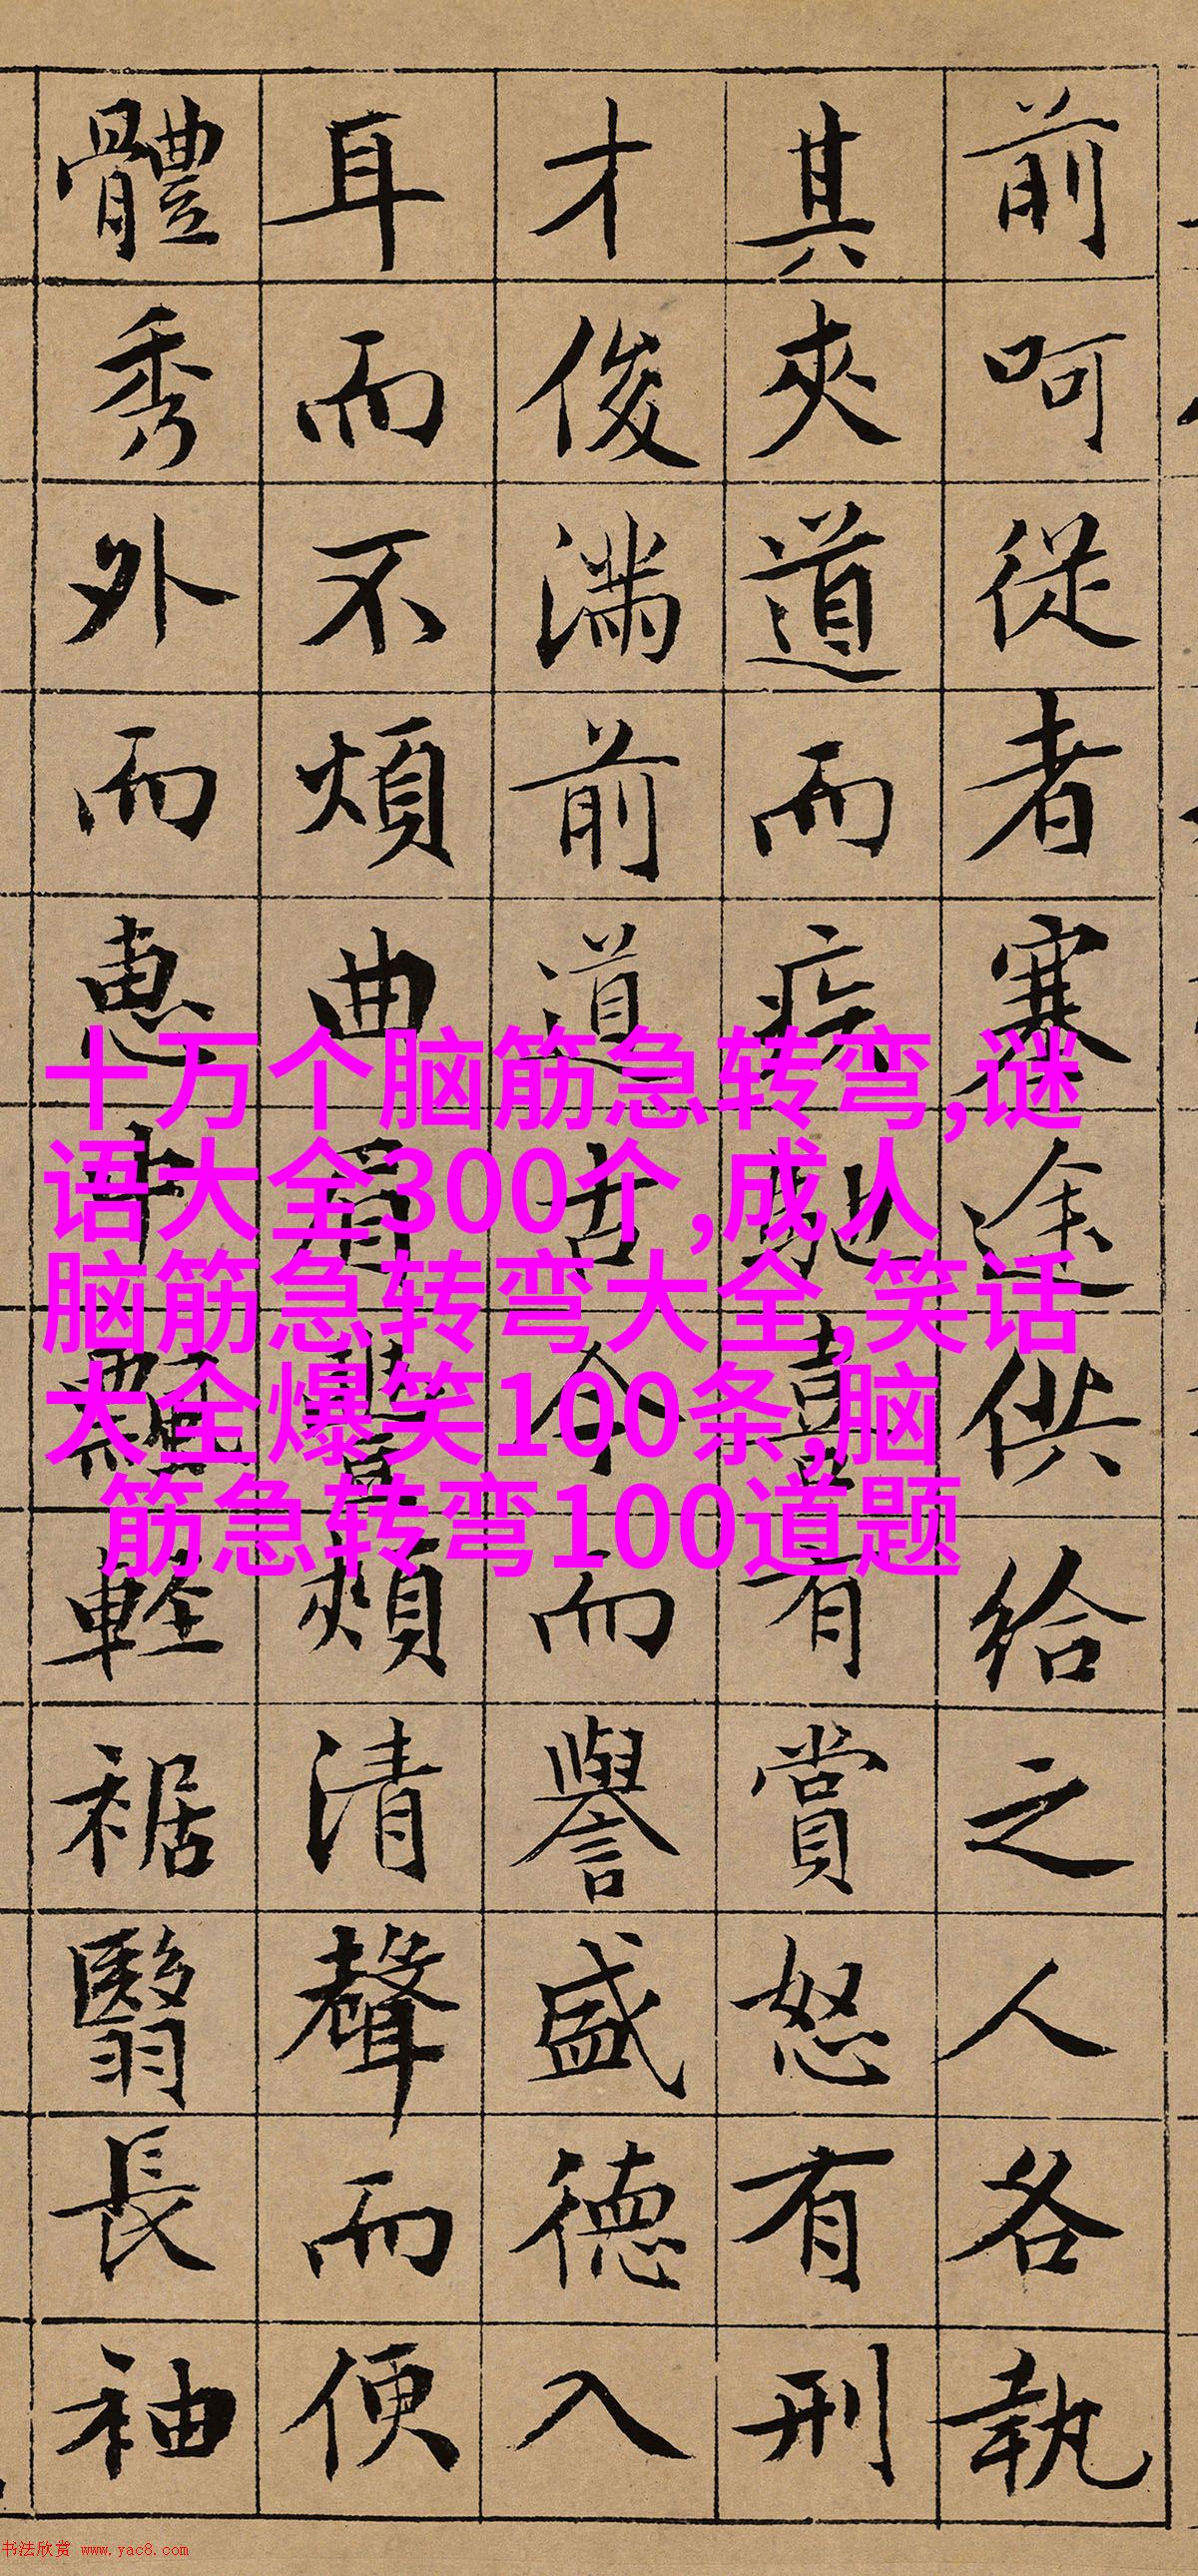 前呵從者塞途供給之人各執
其夾道而疾馳喜有賞怒有刑
才俊滿前道古今而譽盛德入
耳而不煩曲眉豐頰清聲而便
體秀外而惠中飄輕裾翳長袖
十万个脑筋急转弯,谜
语大全300个,成人
脑筋急转弯大全,笑话
大全爆笑100条,脑
筋急转弯100道题
书法欣赏 www.yac8.com